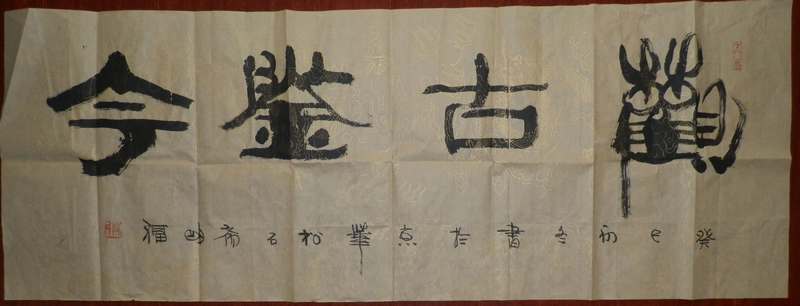 觀古鑒今
癸巳初冬書於京華松石齋